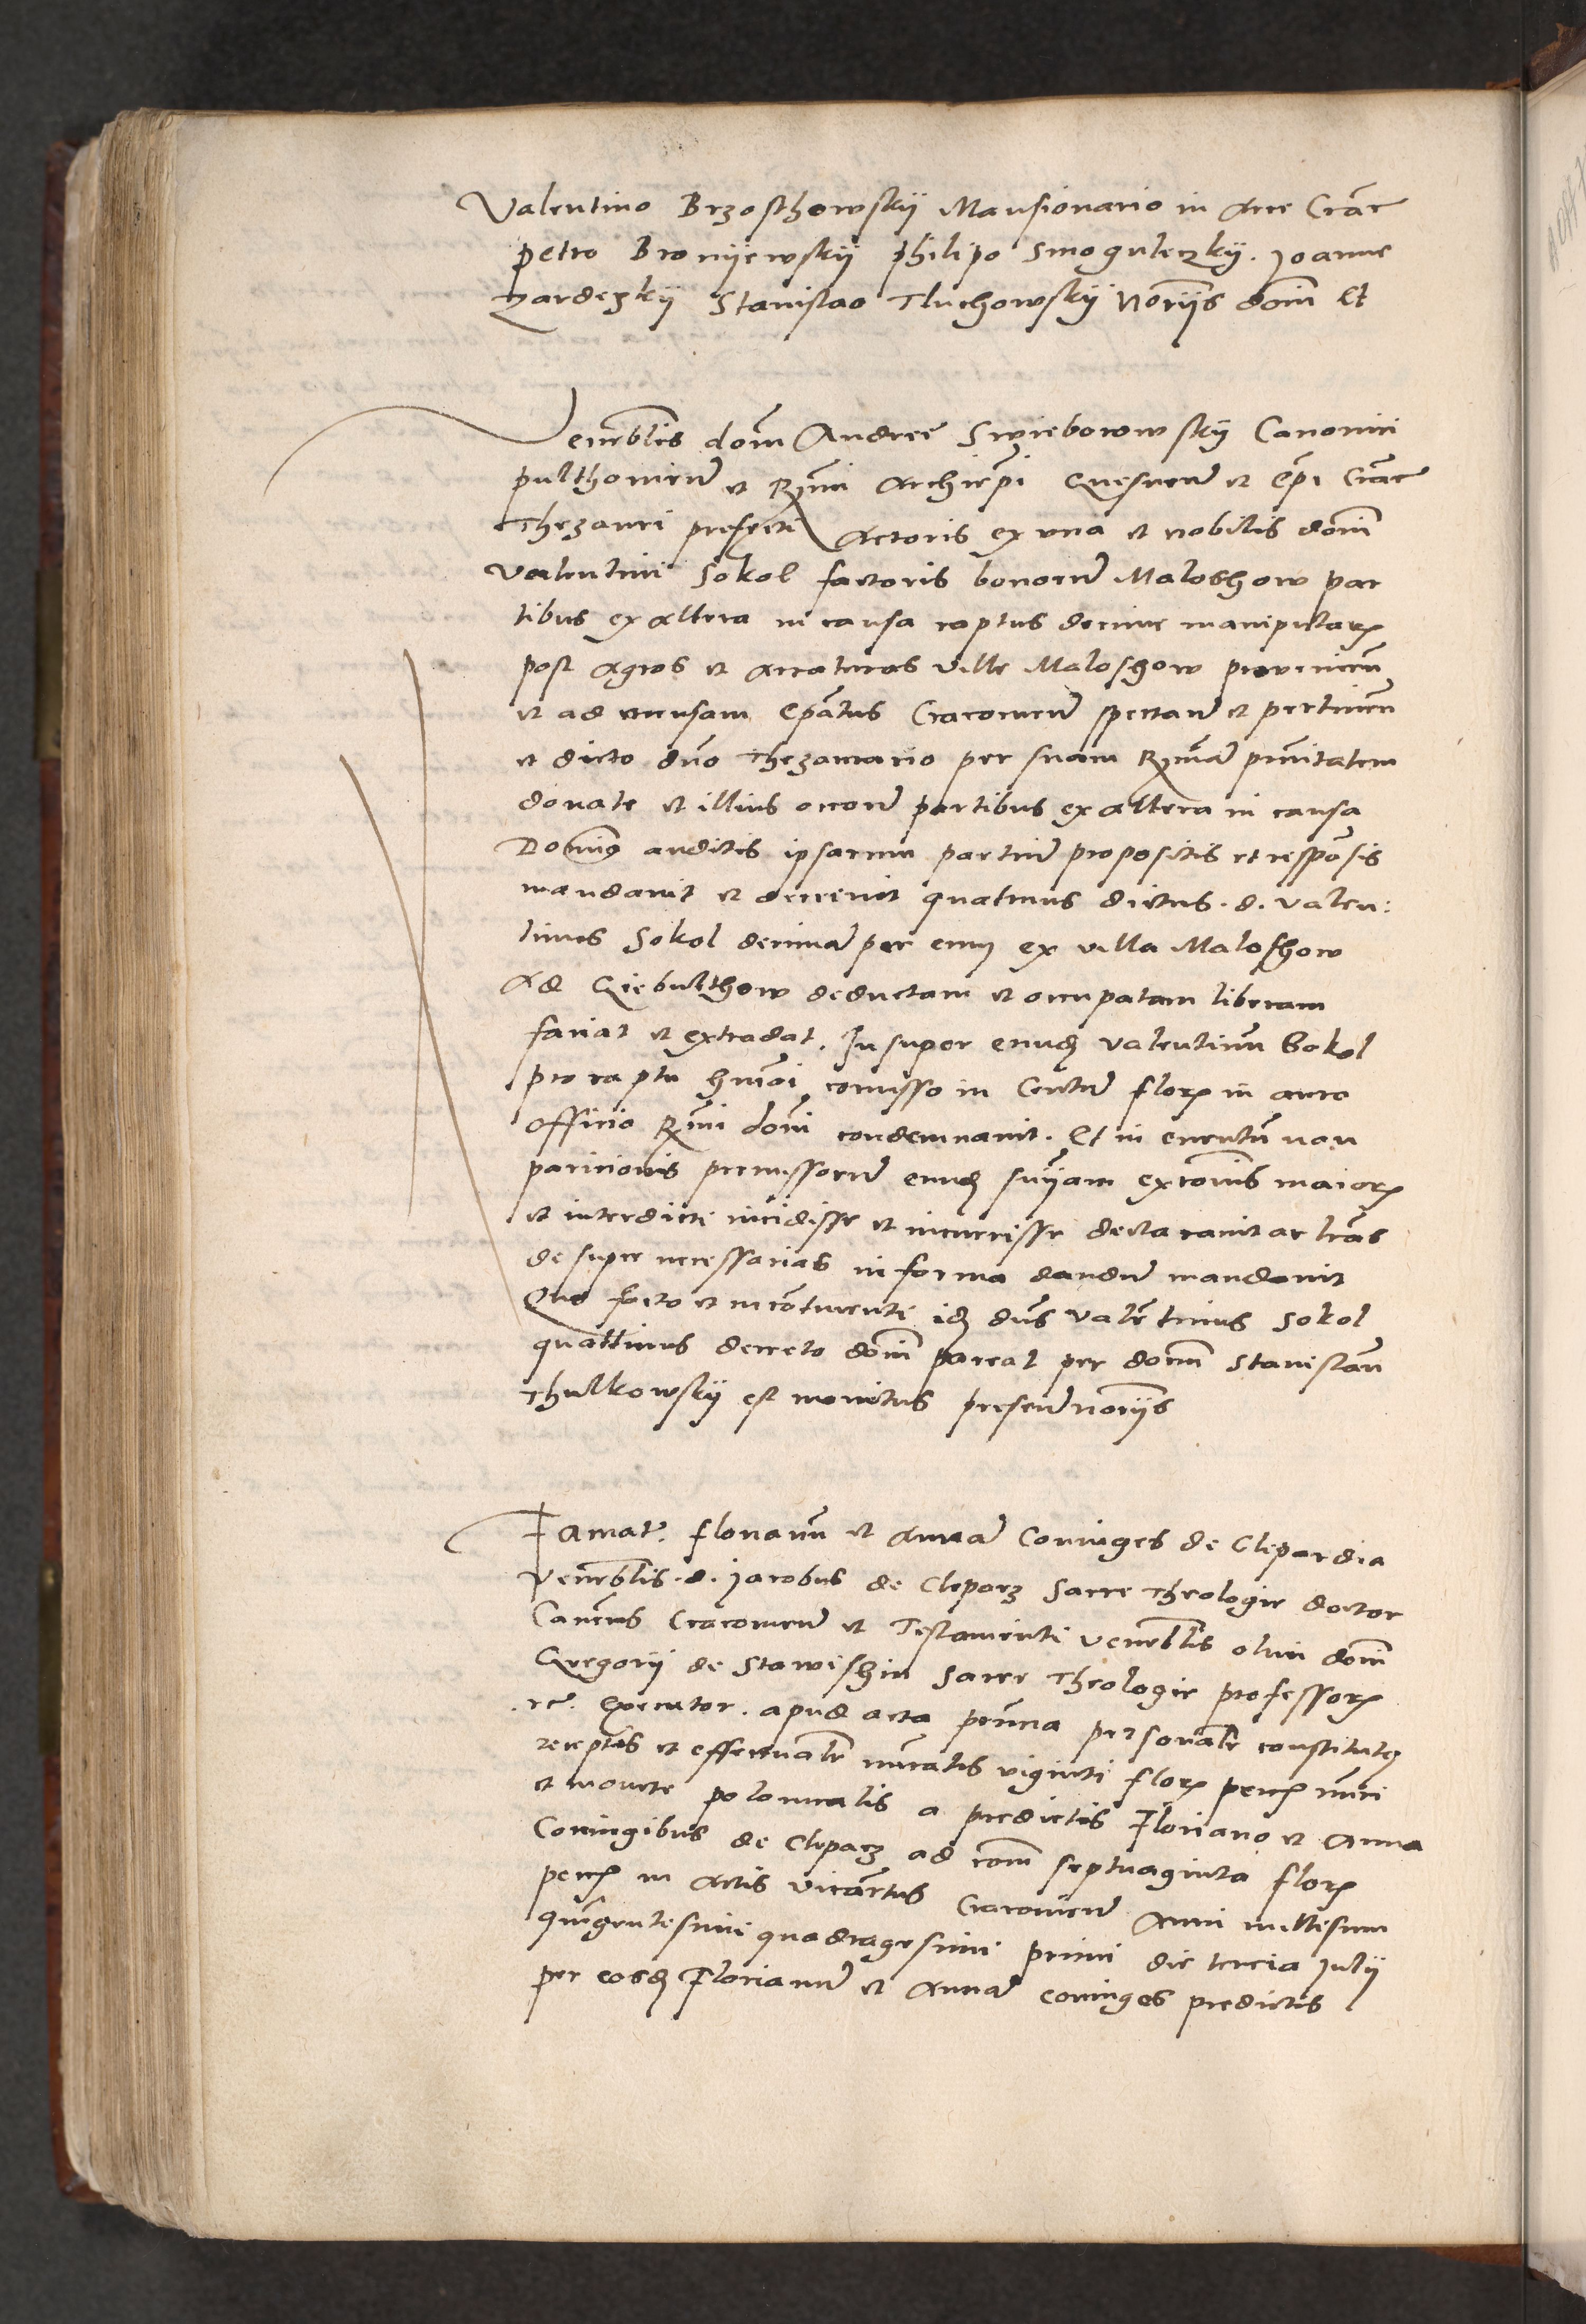 Valentino Brzosthowskÿ Mansionario in Arce Crac̄
petro Bronÿewskÿ philipo Smoguleczkÿ. Joanne
zardeczkÿ Stanislao Tluchowskÿ Nor̄ÿs dom̄ Et
Venerblīs dom̄ Andree Swieborowskÿ Canonici
pulthovien̄ et Rm̄i Archiep̄i Gnesnen̄ et Ep̄i Crac̄
Thezauri prefecti Actoris ex una et nobilis dom̄
Valentini Sokol factoris bonorum̄ Maloshow par
tibus ex altera in causa raptus decime manipular̄
post Agros et Arraturas ville Maloshow provenien̄
et ad mensam Ep̄atus Cracovien̄ spectan̄ et pertinen̄
et dicto dn̄o Thezaurario per suam Rm̄am p̄rnitatem
donate et illius occon̄ partibus ex altera in causa
Domin9 auditis ipsarum partium̄ propositis et respōsis
mandavit et decrevit quatinus dictus. d. Valen:
tinus Sokol decimā per eum ex villa Maloshow
Ad Giebulthow deductam et occupatam liberam
faciat et extradat. Insuper eund̄ Valentinū Sokol
pro raptu hm̄oi comisso in Centum̄ flor̄ in auro
officio Rm̄i dom̄i condemnavit. Et in eventū non
paricionis premissorum̄ eund̄ sn̄ÿam excom̄is maior̄
et interdicti incidisse et incurrisse declaravit ac lr̄as
desuper necessarias in forma dandum̄ mandavit
Quo facto et incōtinenti id̄ dn̄s Valentinus Sokol
quattinus decreto dom̄ pareat per dom̄ Stanislaū
Thulkowskÿ est monitus presen̄ nor̄ÿs
Famat̄. Florianū et Annā Coniuges de Clepardia
Venerblīs. d. Jacobus de Cleparz Sacre Theologie doctor
Can̄cus Cracovien̄ et Testamenti Venerblīs olim dom̄
Gregorÿ de Stawishin Sacre Theologie professor̄
rc̄. Executor. apud acta pn̄cia personalr̄ constitut9
receptis et effectualr̄ nūratis viginti flor̄ pecc̄ nūri
et monete polonicalis a predictis Floriano et Anna
Coniugibus de Cleparz ad rom̄ septuaginta flor̄
pecc̄ in Actis vicār̄tus Cracovien̄ Anni millesimi
quīngentesimi quadragesimi primi die tercia Julÿ
per eosd̄ Florianum̄ et Annā coniuges predictis